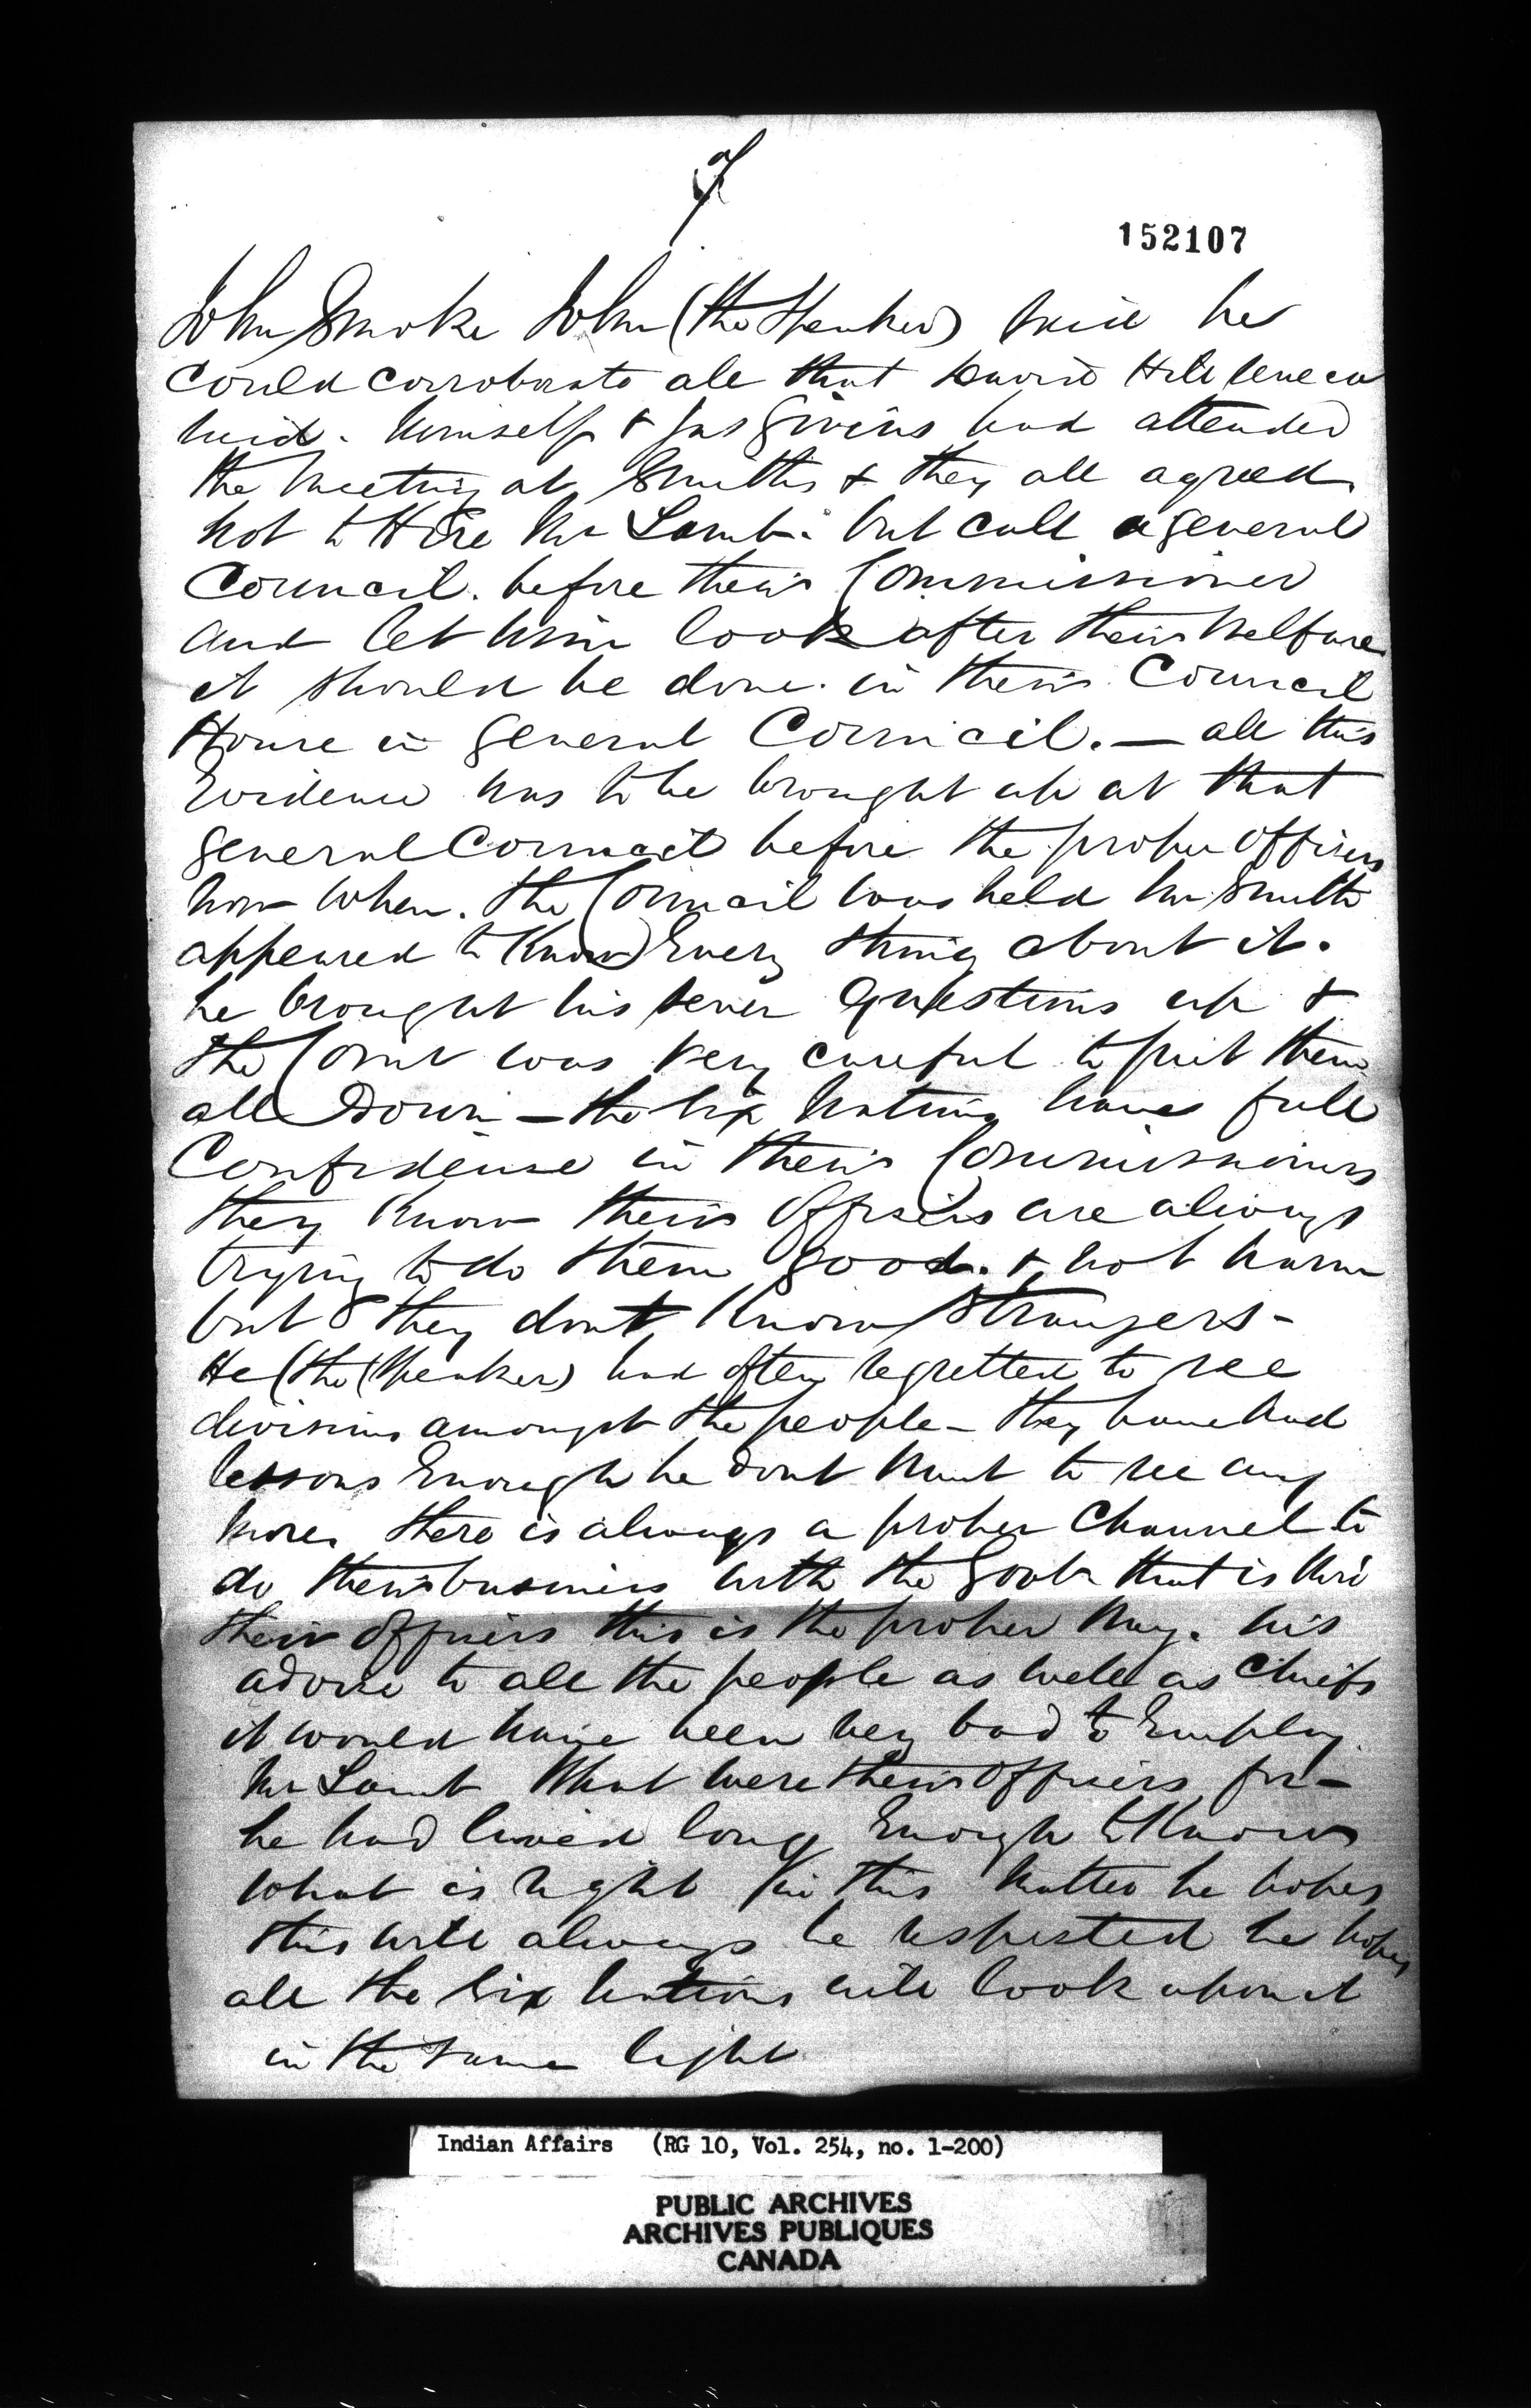 7
152107
John Smoke John (the Speaker) said he
could corroborate all that David Hill Seneca
said. himself & Jas Givins had attended
the meeting at Smiths & they all agreed
not to Hire Mr Lamb. but call a general
Council. before their Commissioner
and let him look after their welfare
it should be done in their Council
House in general Council. — all this
Evidence was to be brought up at that
general Council before the proper officers
now when. the Council was held Mr Smith
appeared to know Every thing about it.
he brought his seven Questions up &
the Court was very careful to put them
all Down — the Six Nations have full
Confidence in their Commissioners
they know their Officers are always
trying to do them good. & not harm
but they dont know strangers -
He (the Speaker) had often regretted to see
divisions amongst the people - they have had
lessons Enough he dont want to see any
more. there is always a proper Channel to
do their business with the Govt that is thro
their officers this is the proper way. his
advice to all the people as well as Chiefs
it would have been very bad to Employ
Mr Lamb What were their Officers for -
he had lived long Enough to know
what is right in this matter he hopes
this will always be respected he hopes
all the Six Nations will look upon it
in the same light
Indian Affairs (RG 10, Vol. 254, no. 1-200)
PUBLIC ARCHIVES
ARCHIVES PUBLIQUES
CANADA